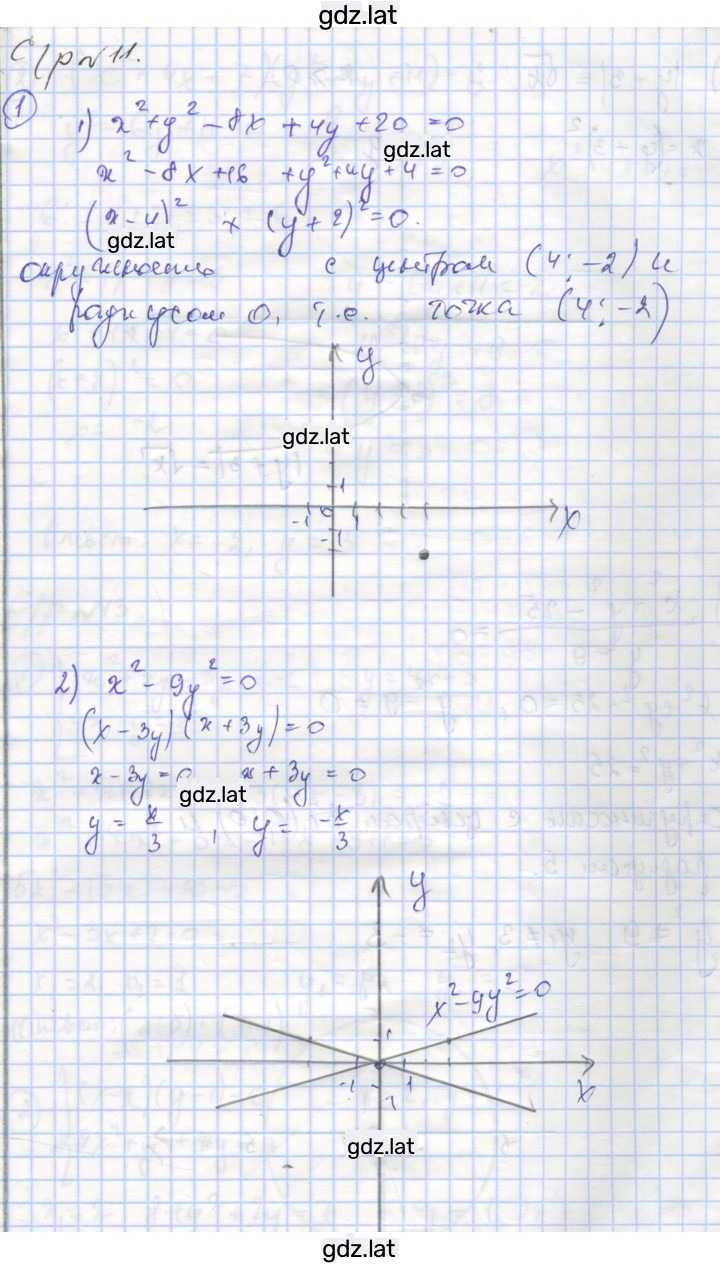 gdz.lat
С/р №11.
1
1) x² + y² - 8x + 4y + 20 = 0
gdz.lat
x² - 8x + 16 + y² + 4y + 4 = 0
(x - 4)² + (y + 2)² = 0.
gdz.lat
окружность с центром (4; -2) и
радиусом 0, т.е. точка (4; -2)
y
gdz.lat
1
-1 0 1 x
-1
2) x² - 9y² = 0
(x - 3y)(x + 3y) = 0
x - 3y = 0 x + 3y = 0
gdz.lat
y = x/3 , y = -x/3
y
x² - 9y² = 0
1
-1 1 x
-1
gdz.lat
gdz.lat